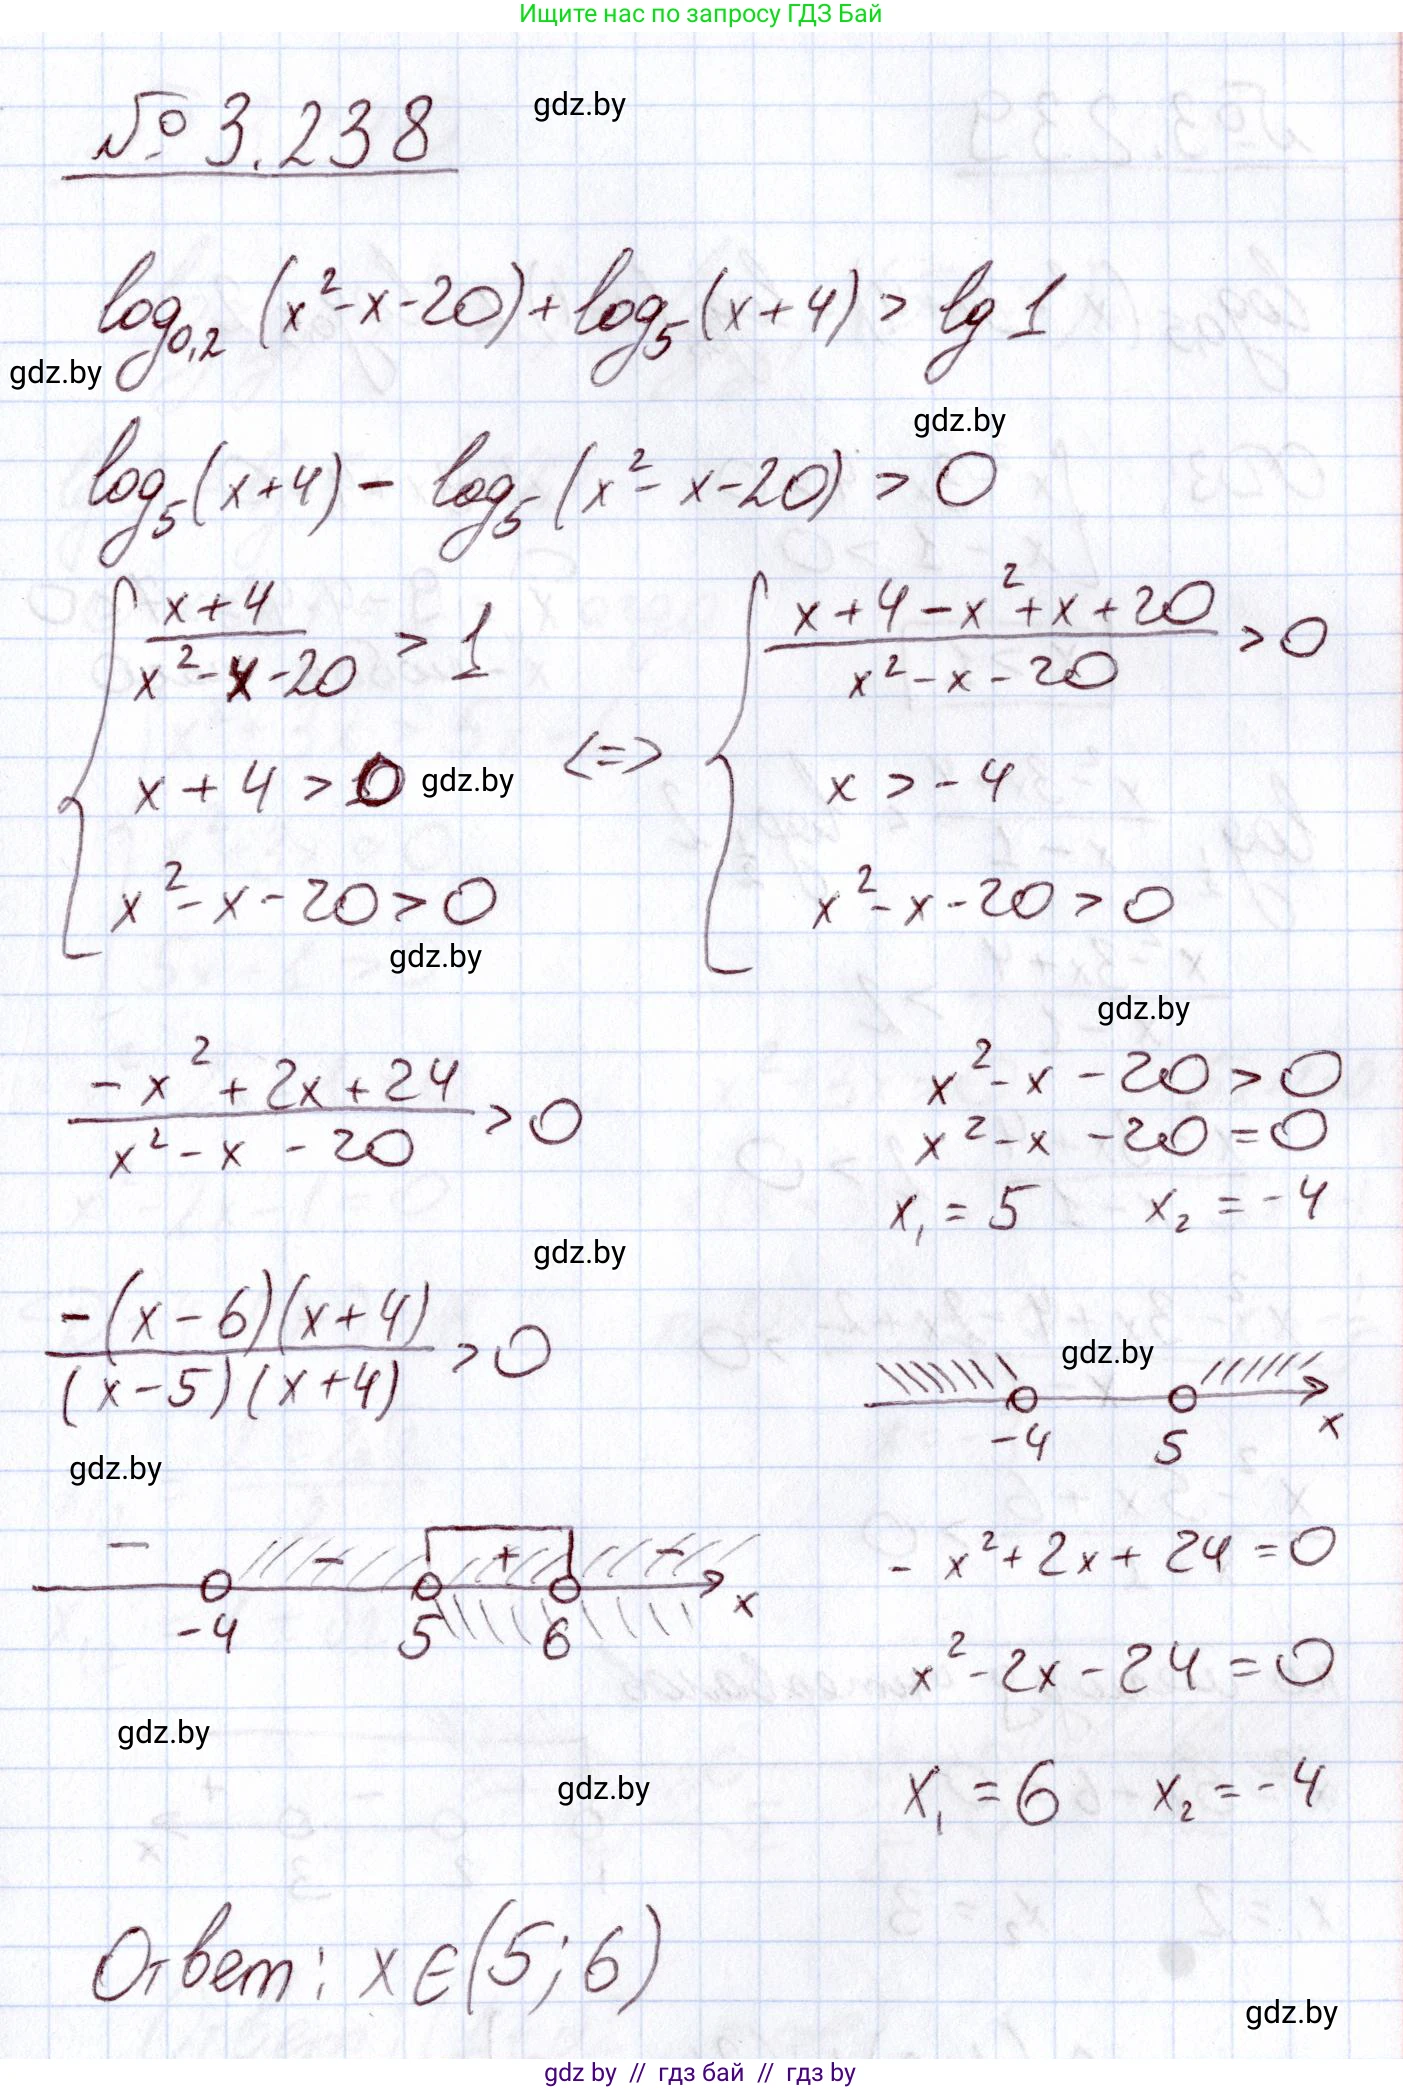 Ищите нас по запросу ГДЗ Бай
№ 3.238
gdz.by
log₀,₂ (x² - x - 20) + log₅ (x + 4) > lg 1
gdz.by
gdz.by
log₅ (x + 4) - log₅ (x² - x - 20) > 0
{ (x + 4)/(x² - x - 20) > 1 <=> { (x + 4 - x² + x + 20)/(x² - x - 20) > 0
x + 4 > 0 x > -4
gdz.by
x² - x - 20 > 0 x² - x - 20 > 0
gdz.by
gdz.by
(-x² + 2x + 24)/(x² - x - 20) > 0
x² - x - 20 > 0
x² - x - 20 = 0
x₁ = 5 x₂ = -4
gdz.by
(-(x - 6)(x + 4))/((x - 5)(x + 4)) > 0
gdz.by
-4 5 x
gdz.by
- - + -
-4 5 6 x
-x² + 2x + 24 = 0
x² - 2x - 24 = 0
gdz.by
gdz.by
x₁ = 6 x₂ = -4
Ответ: x ∈ (5; 6)
gdz.by
gdz by // гдз бай // гдз by